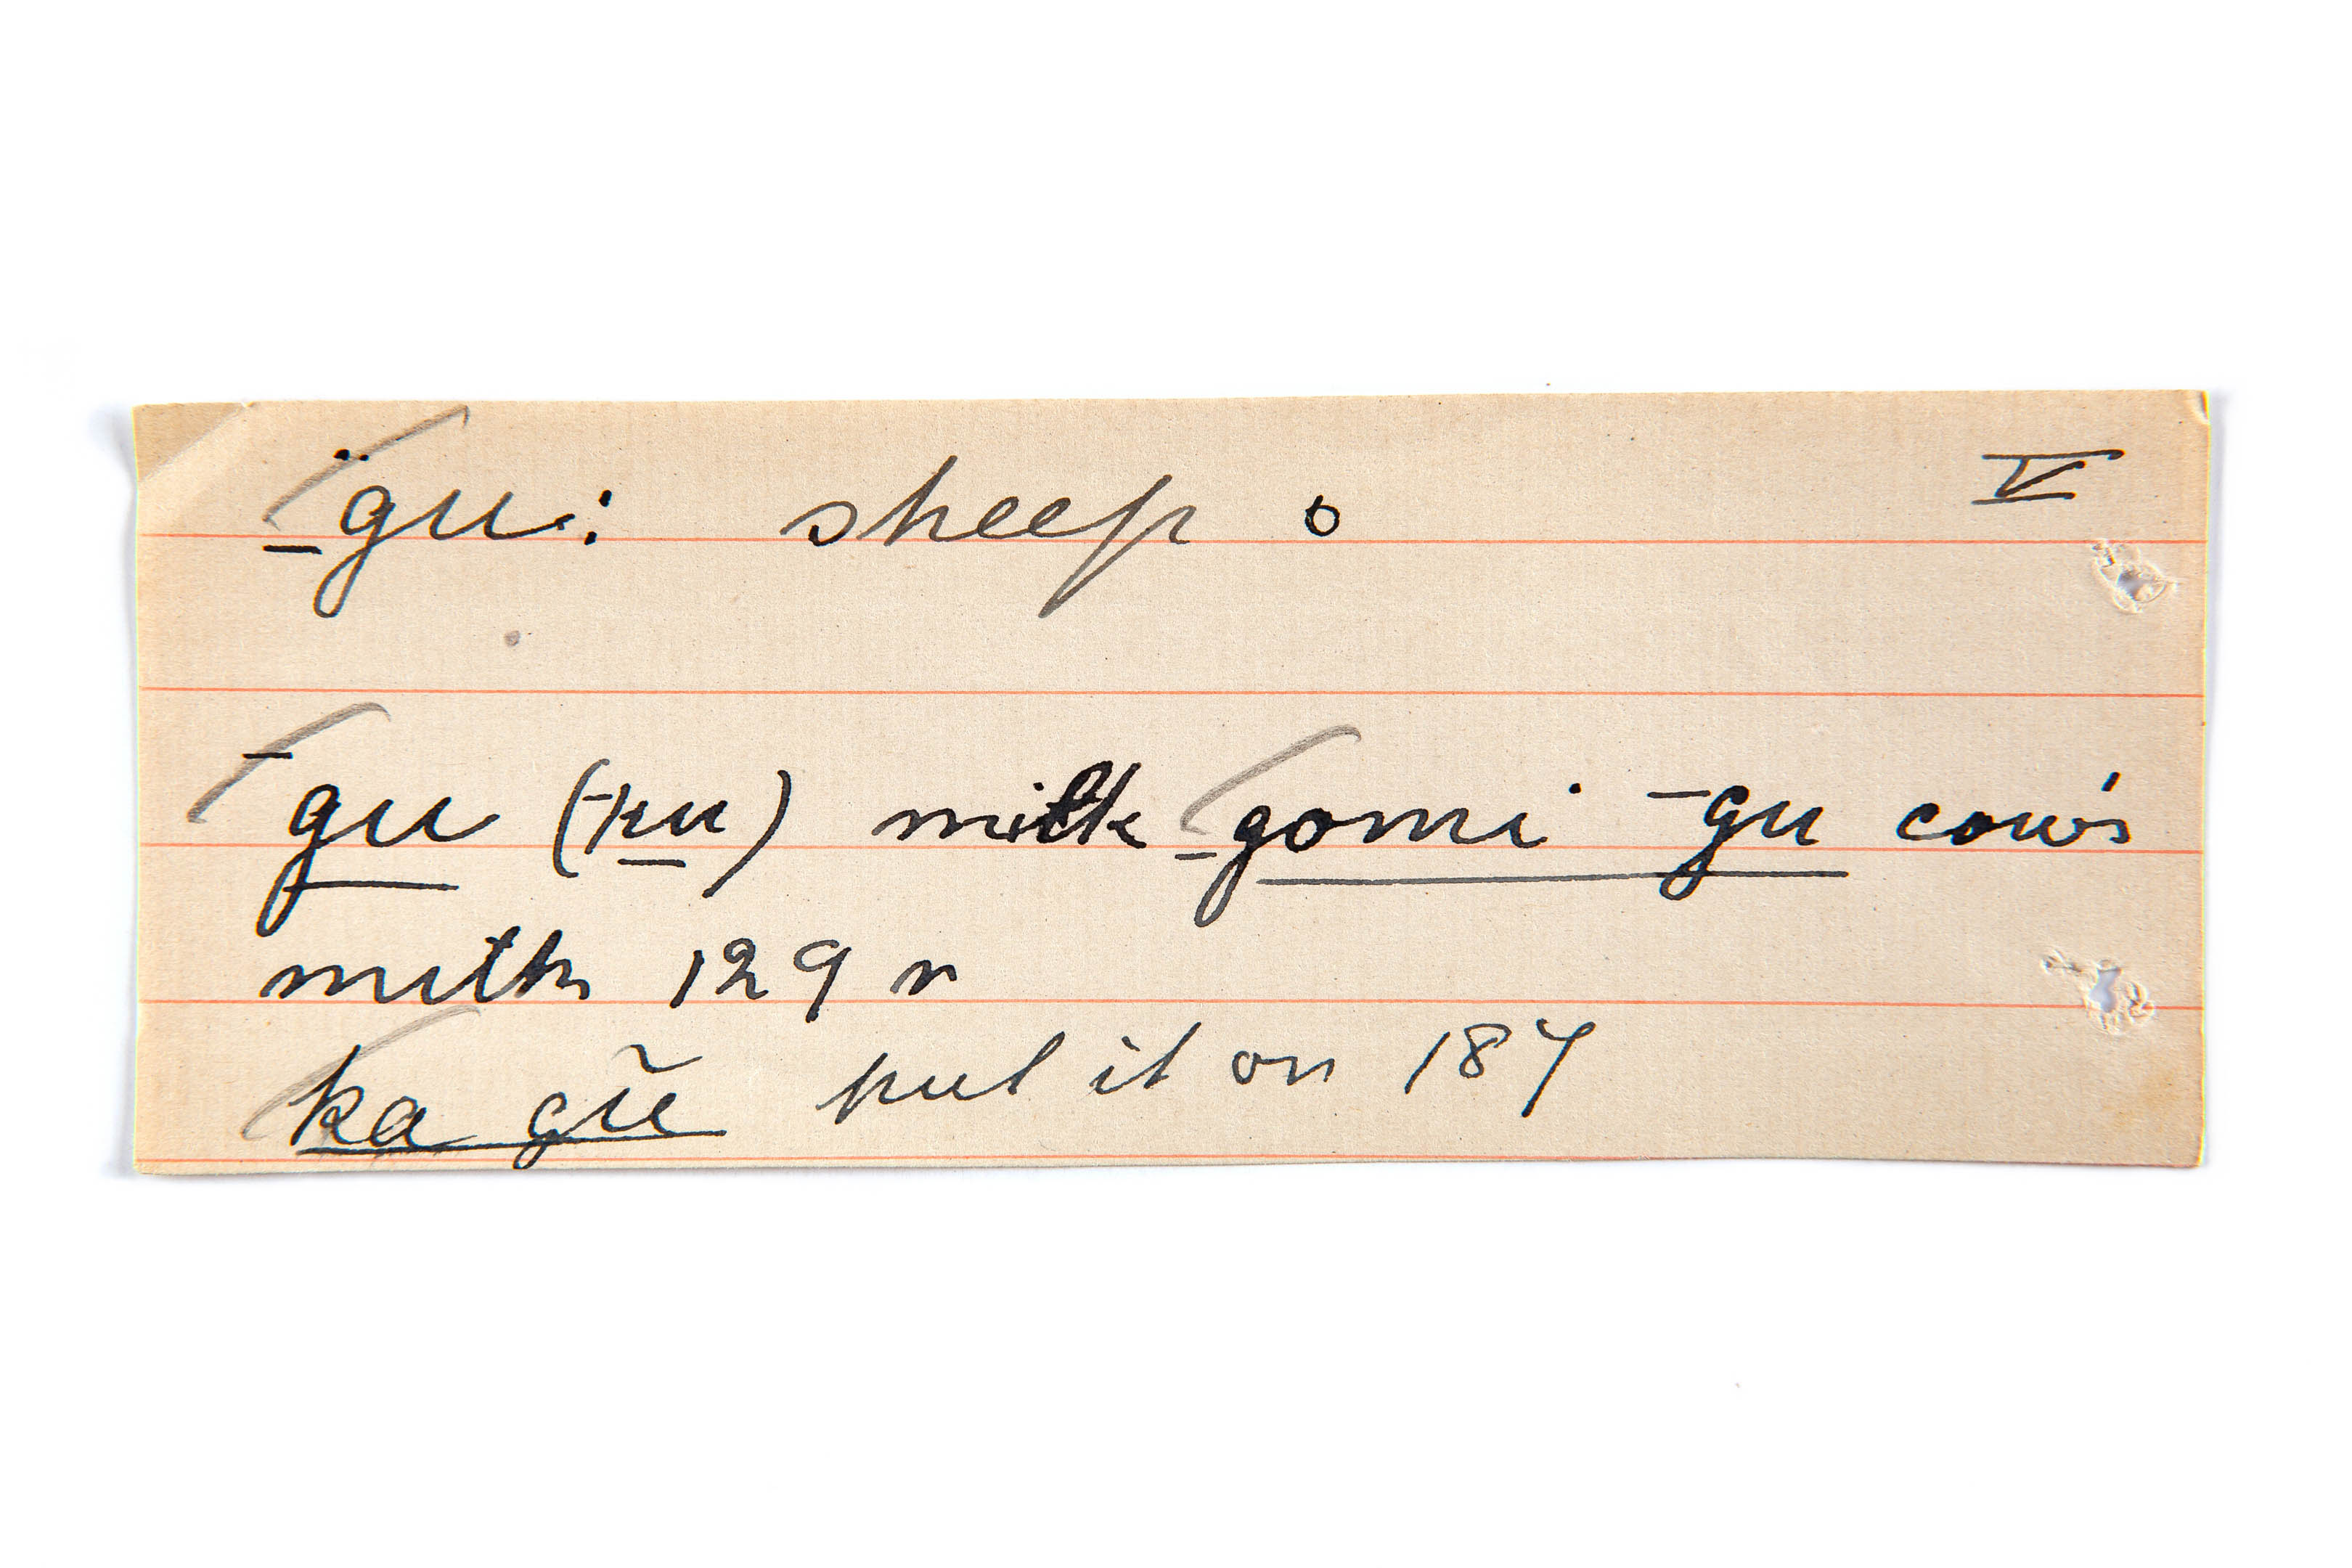 _g̈u: sheep o V
¯gu (¯ku) milk _gomi ¯gu cow's
milk 129 r
ka gŭe put it on 187